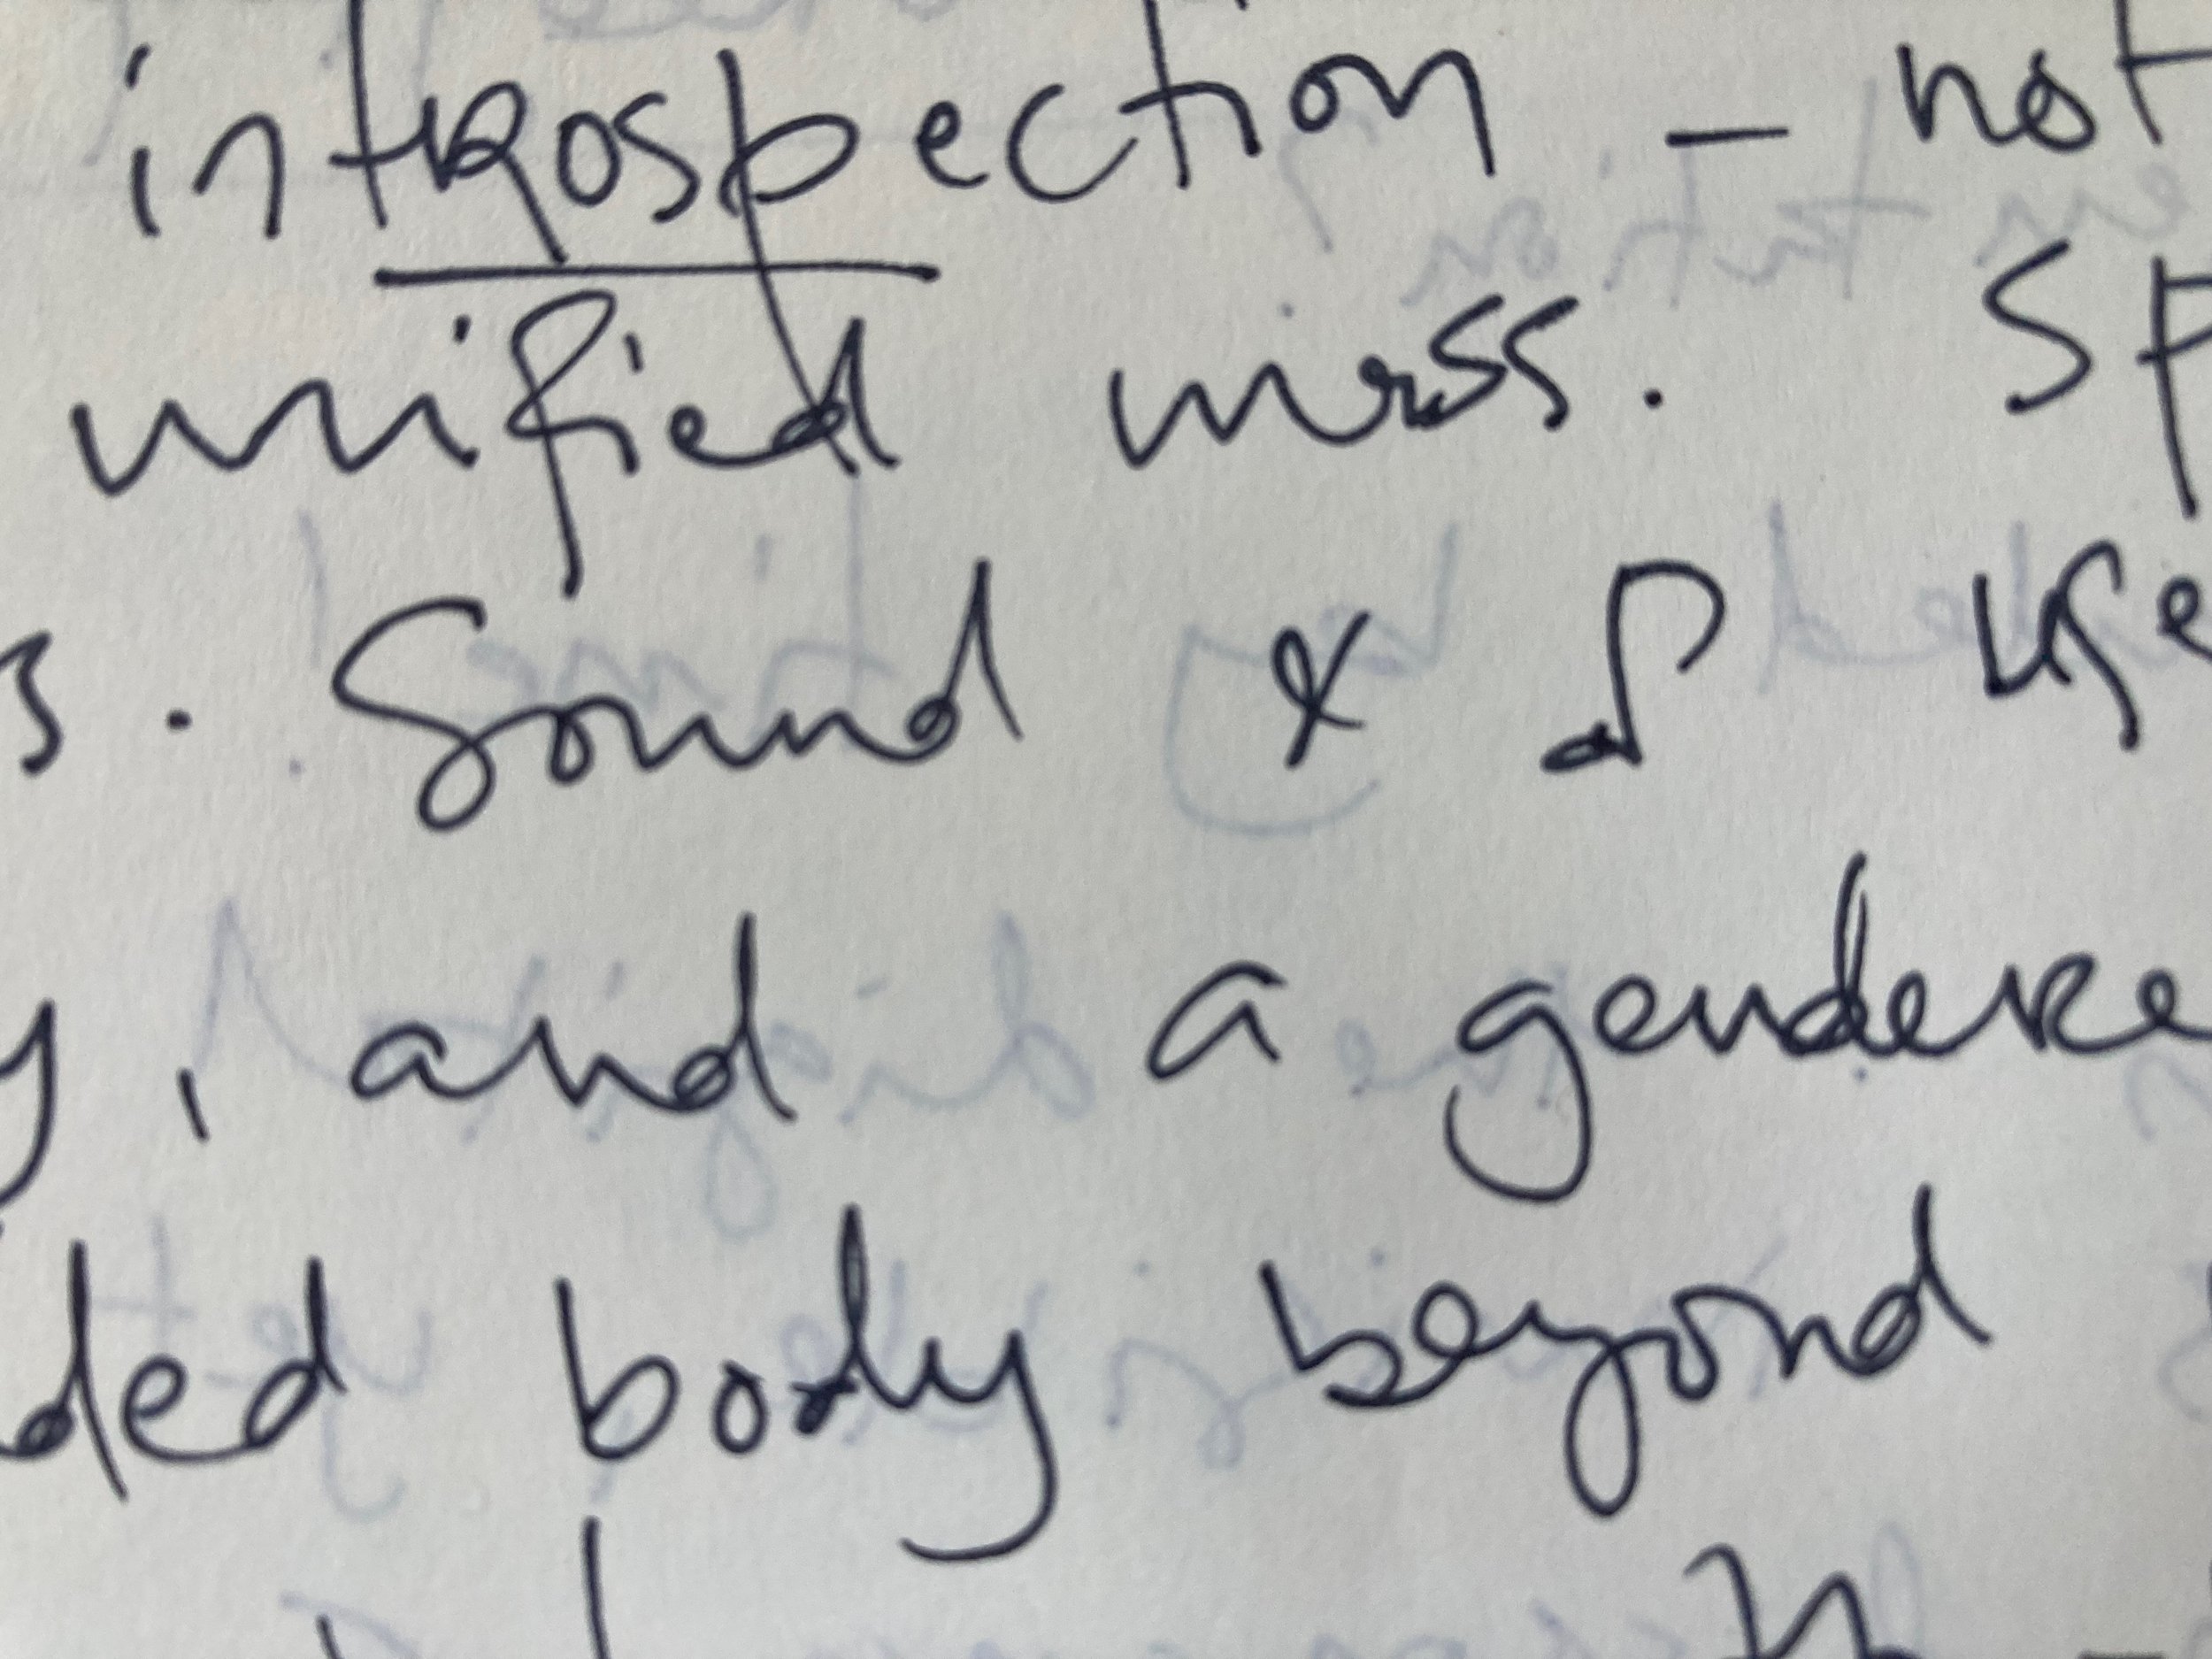 introspection – not
unified mass. Sp
s. Sound & of use
y, and a gendere
ded body beyond